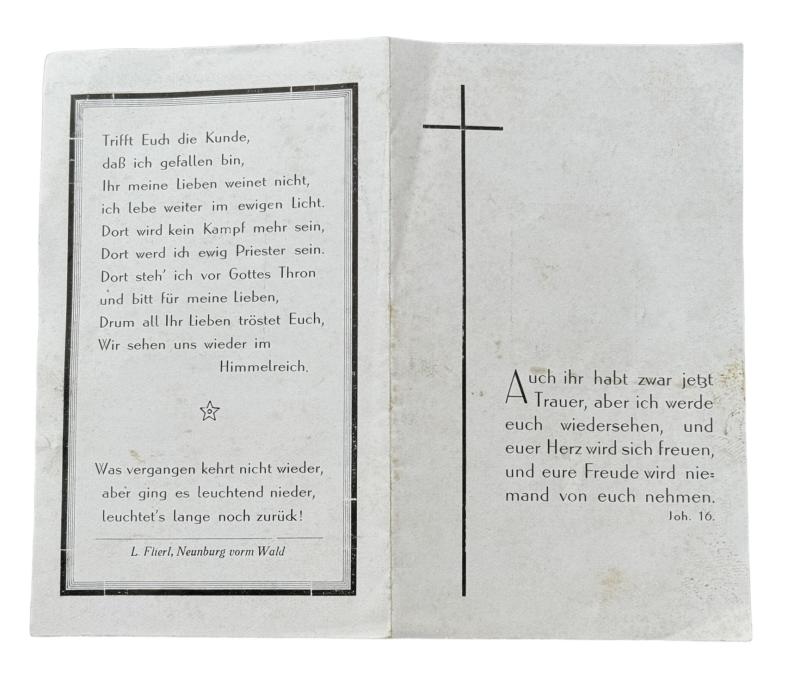 Trifft Euch die Kunde,
daß ich gefallen bin,
Ihr meine Lieben weinet nicht,
ich lebe weiter im ewigen Licht.
Dort wird kein Kampf mehr sein,
Dort werd ich ewig Priester sein.
Dort steh' ich vor Gottes Thron
und bitt für meine Lieben,
Drum all Ihr Lieben tröstet Euch,
Wir sehen uns wieder im
Himmelreich.
Was vergangen kehrt nicht wieder,
aber ging es leuchtend nieder,
leuchtet's lange noch zurück!
L. Flierl, Neunburg vorm Wald
Auch ihr habt zwar jetzt
Trauer, aber ich werde
euch wiedersehen, und
euer Herz wird sich freuen,
und eure Freude wird nie=
mand von euch nehmen.
Joh. 16.